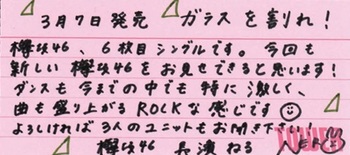 3月7日発売 ガラスを割れ!
欅坂46、6枚目シングルです。今回も
新しい欅坂46をお見せできると思います!
ダンスも今までの中でも特に激しく、
曲も盛り上がるROCKな感じです
よろしければ3人のユニットもお聞き下さい!
欅坂46 長濱ねる